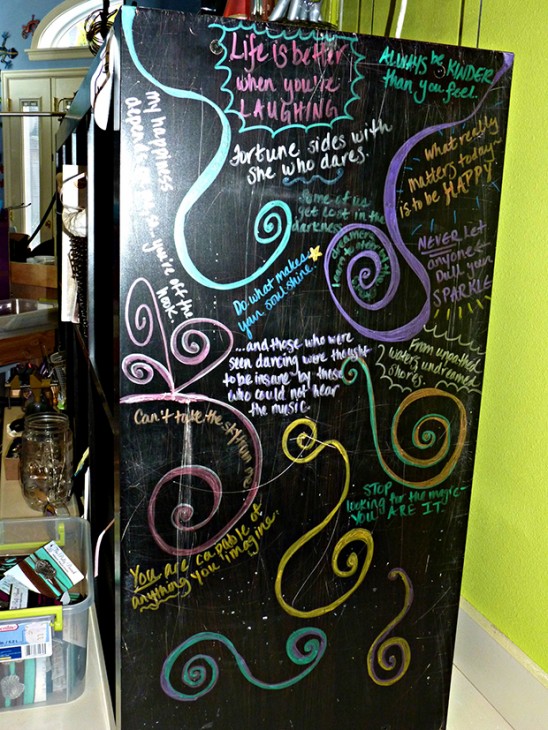 Life is better
when you're
LAUGHING
ALWAYS be KINDER
than you feel.
Fortune sides with
she who dares.
what really
matters today~
is to be HAPPY
my happiness
depends on me,
so you're off the
hook.
Some of us
get lost in the
darkness
dreamers
learn to
NEVER Let
anyone
Dull your
SPARKLE
Do what makes
your soul shine.
...and those who were
seen dancing were thought
to be insane by those
who could not hear
the music.
From unpathed
waters, undreamed
shores.
Can't take the
me
STOP
looking for the magic~
YOU ARE IT.
You are capable of
anything you imagine.